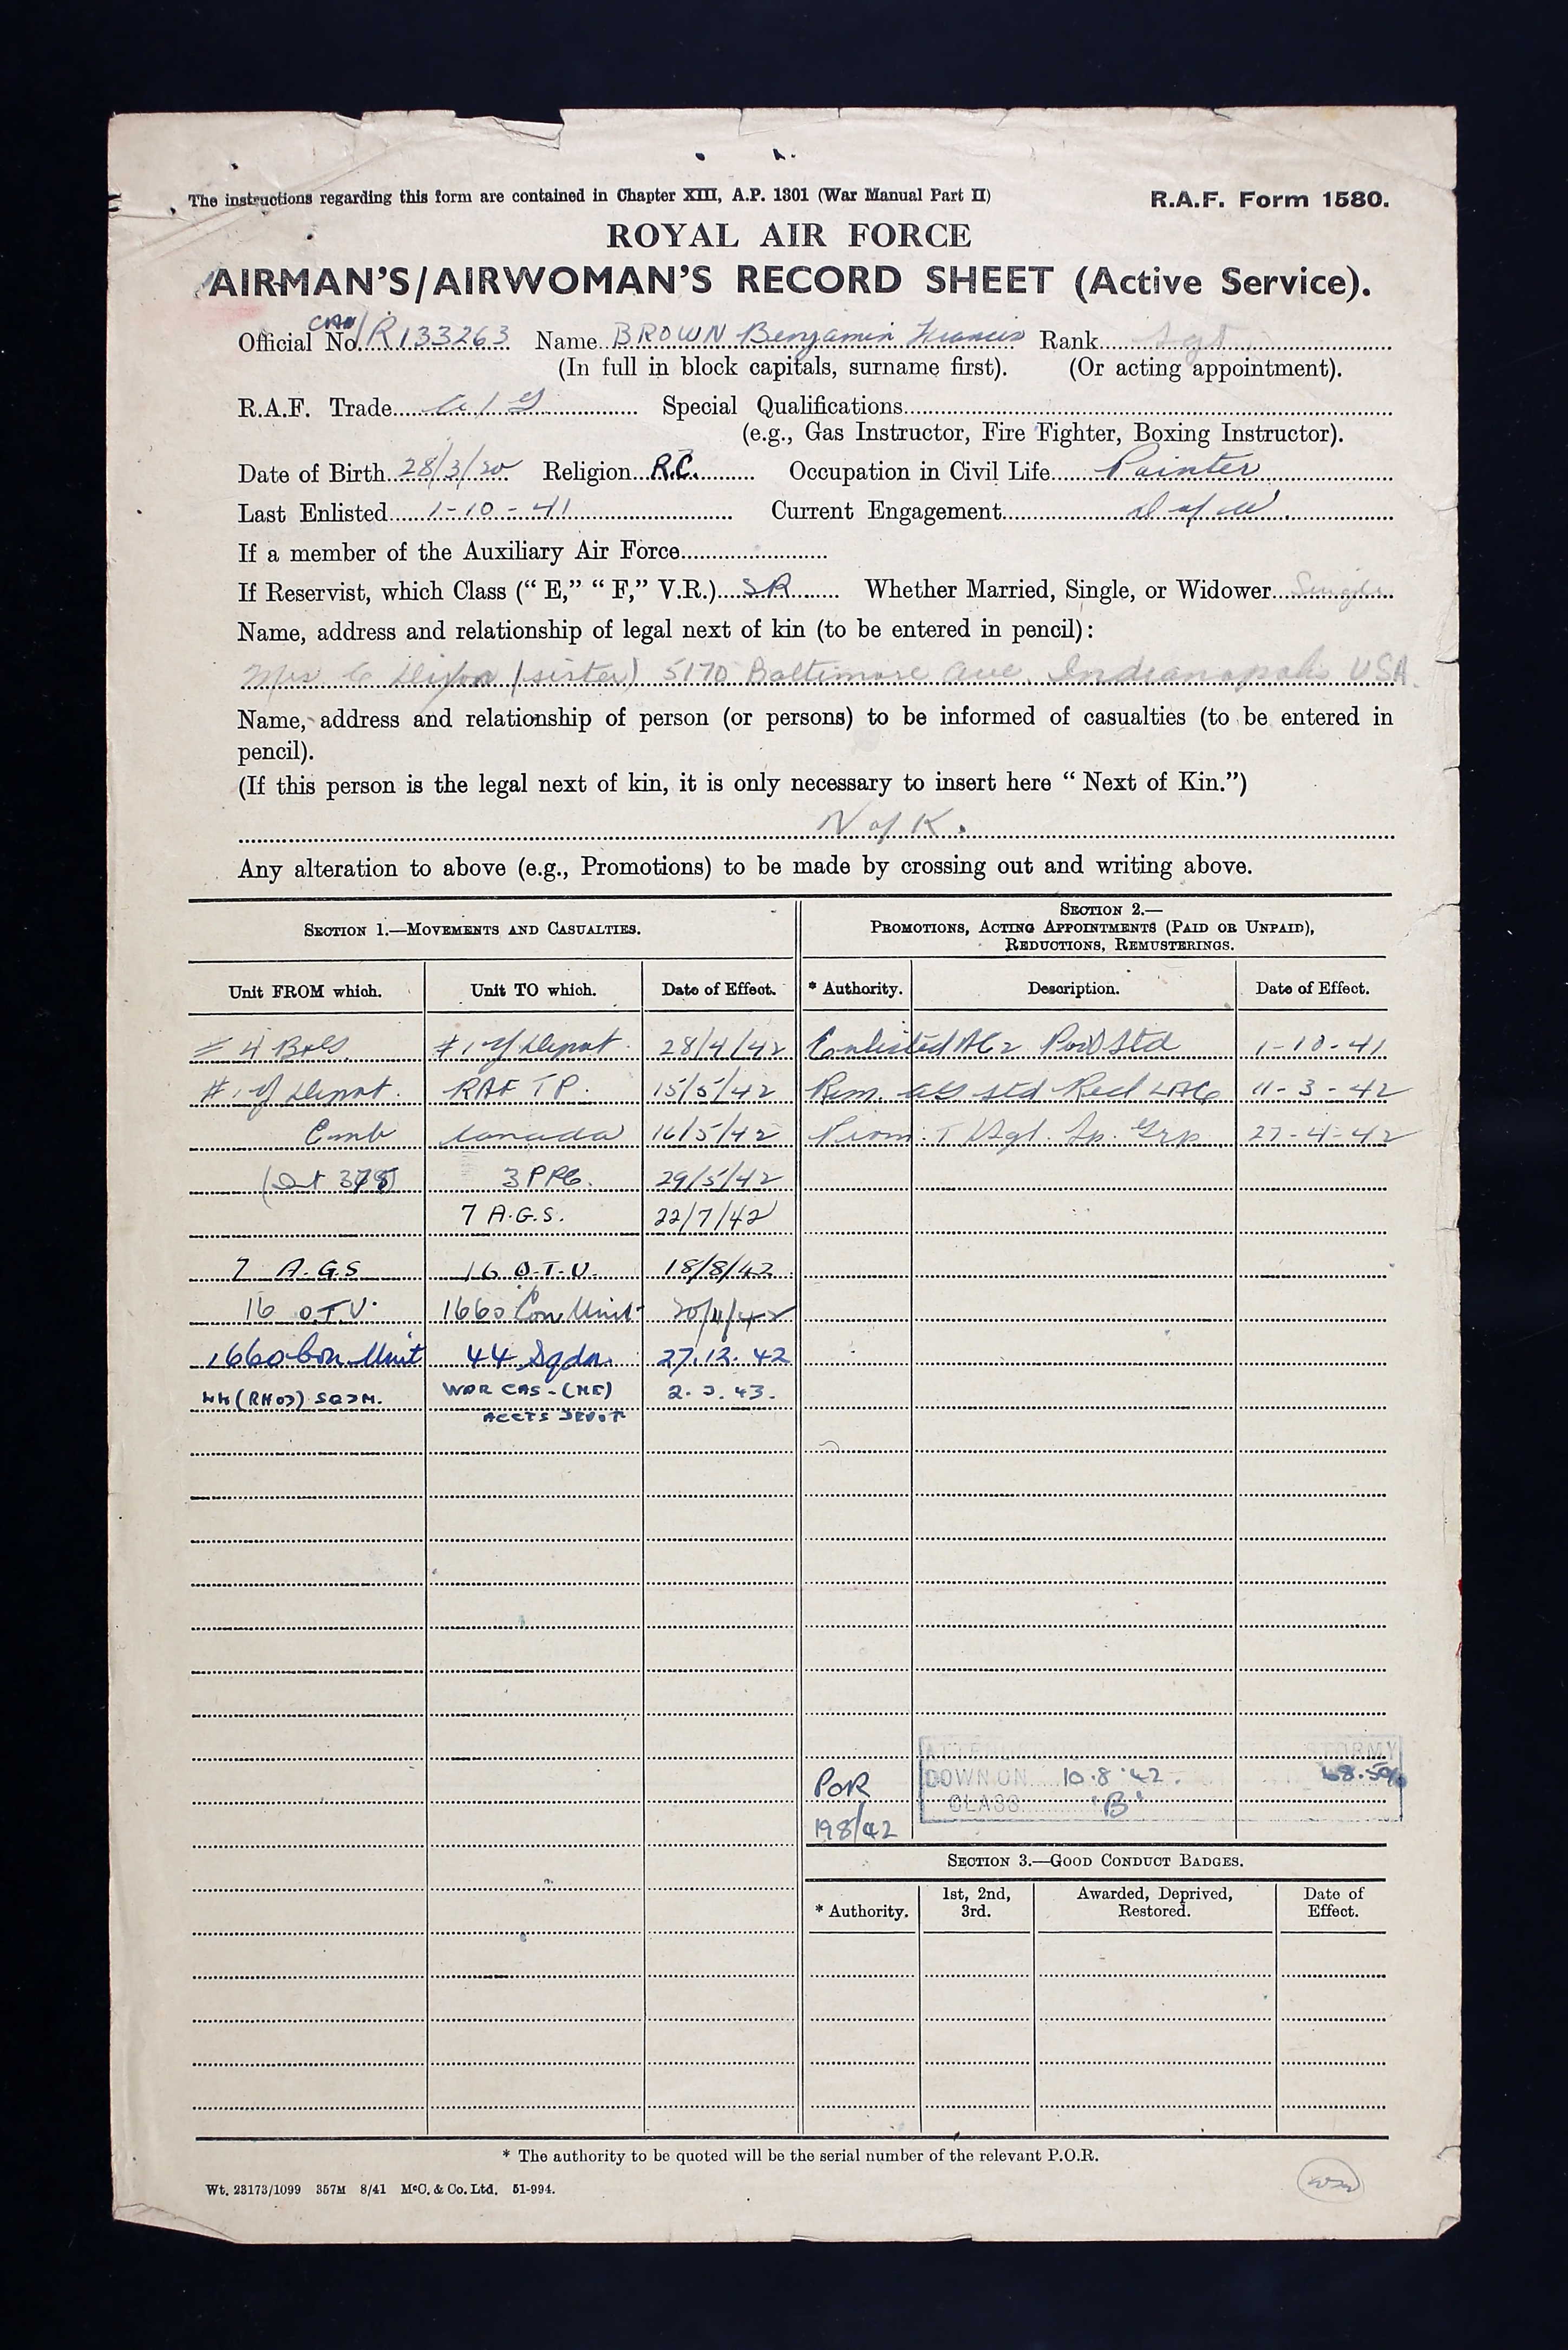 The instructions regarding this form are contained in Chapter XIII, A.P. 1301 (War Manual Part II) R.A.F. Form 1580.
ROYAL AIR FORCE
AIRMAN'S/AIRWOMAN'S RECORD SHEET (Active Service).
Official No. CAN/R133263 Name BROWN Benjamin Francis Rank Sgt
(In full in block capitals, surname first). (Or acting appointment).
R.A.F. Trade A/G Special Qualifications
(e.g., Gas Instructor, Fire Fighter, Boxing Instructor).
Date of Birth 28/3/20 Religion R.C. Occupation in Civil Life Painter
Last Enlisted 1-10-41 Current Engagement D of W.
If a member of the Auxiliary Air Force
If Reservist, which Class ("E," "F," V.R.) SR Whether Married, Single, or Widower Single
Name, address and relationship of legal next of kin (to be entered in pencil):
Mrs C Dixon (sister) 5170 Baltimore Ave. Indianapolis USA.
Name, address and relationship of person (or persons) to be informed of casualties (to be entered in
pencil).
(If this person is the legal next of kin, it is only necessary to insert here "Next of Kin.")
N of K.
Any alteration to above (e.g., Promotions) to be made by crossing out and writing above.
SECTION 1.—MOVEMENTS AND CASUALTIES. SECTION 2.—
PROMOTIONS, ACTING APPOINTMENTS (PAID OR UNPAID),
REDUCTIONS, REMUSTERINGS.
Unit FROM which. Unit TO which. Date of Effect. * Authority. Description. Date of Effect.
# 4 B&GS #1 Y Depot. 28/4/42 Enlisted AC2 Std 1-10-41
#1 Y Depot. RAF TP. 15/5/42 Rem. AG std Recl LAC 11-3-42
Emb Canada 16/5/42 Prom. T/Sgt. Sp. Grp. 27-4-42
3 PRC. 29/5/42
7 A.G.S. 22/7/42
7 A.G.S 16 O.T.U. 18/8/42
16 O.T.U. 1660 Con Unit 20/11/42
1660 Con Unit 44 Sqdn. 27.12.42
44 (RHOD) SQDN. WAR CAS-(NE) 2.3.43.
ACCTS DEPOT
STORMY
POR DOWN ON 10.8.42. 68.5%
198/42 CLASS 'B'
SECTION 3.—GOOD CONDUCT BADGES.
* Authority. 1st, 2nd, 3rd. Awarded, Deprived, Restored. Date of Effect.
* The authority to be quoted will be the serial number of the relevant P.O.R.
Wt. 23173/1099 357M 8/41 McC. & Co. Ltd. 51-994.